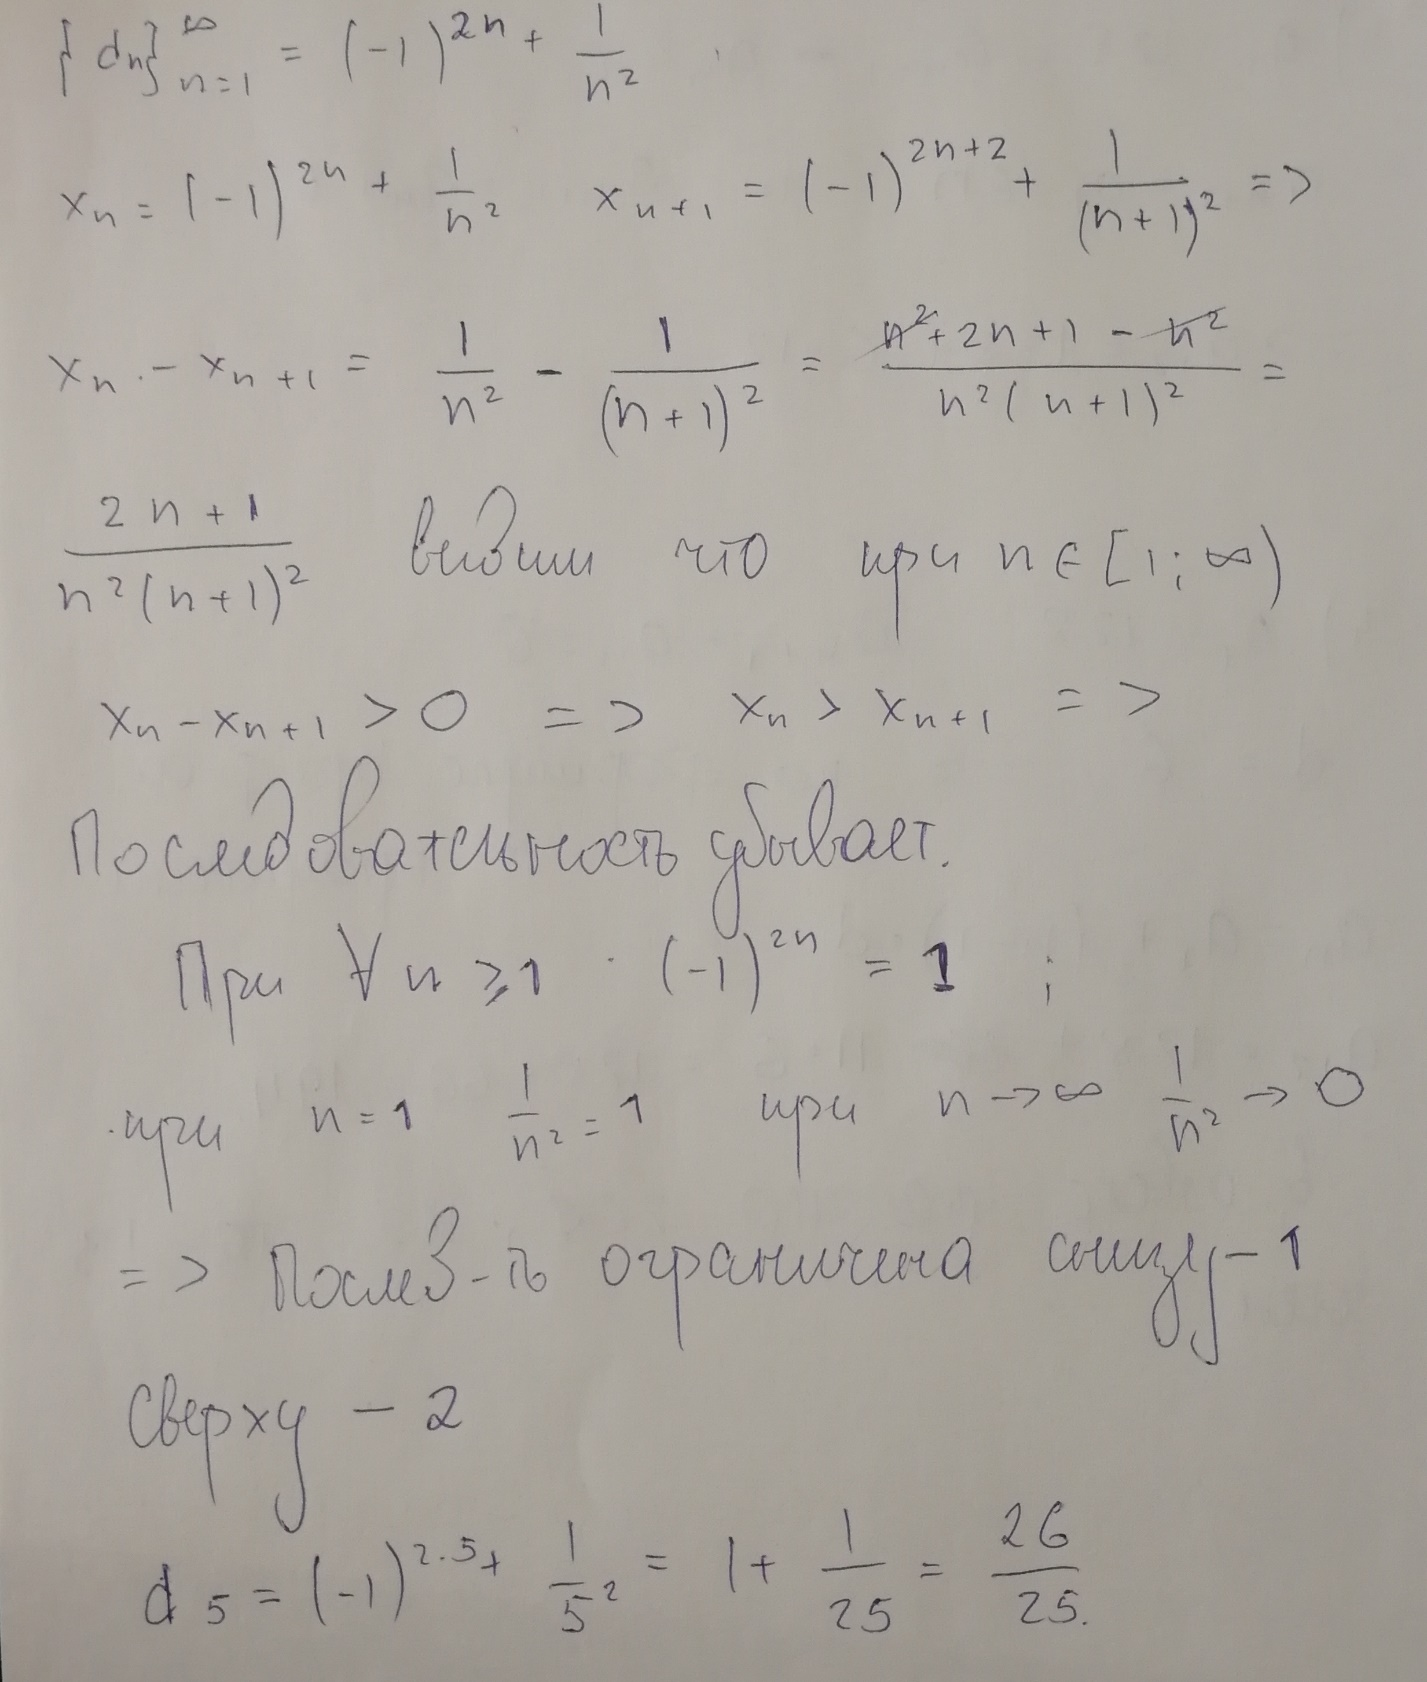 {dn}_{n=1}^∞ = (-1)^{2n} + 1/n²
x_n = (-1)^{2n} + 1/n²   x_{n+1} = (-1)^{2n+2} + 1/(n+1)² =>
x_n - x_{n+1} = 1/n² - 1/(n+1)² = (n²+2n+1-n²)/(n²(n+1)²) =
(2n+1)/(n²(n+1)²) видим что при n ∈ [1; ∞)
x_n - x_{n+1} > 0 => x_n > x_{n+1} =>
Последовательность убывает.
При ∀n ⩾ 1 (-1)^{2n} = 1 ;
при n=1 1/n² = 1 при n→∞ 1/n² → 0
=> Послед-ть ограничена снизу - 1
Сверху - 2
d_5 = (-1)^{2·5} + 1/5² = 1 + 1/25 = 26/25.